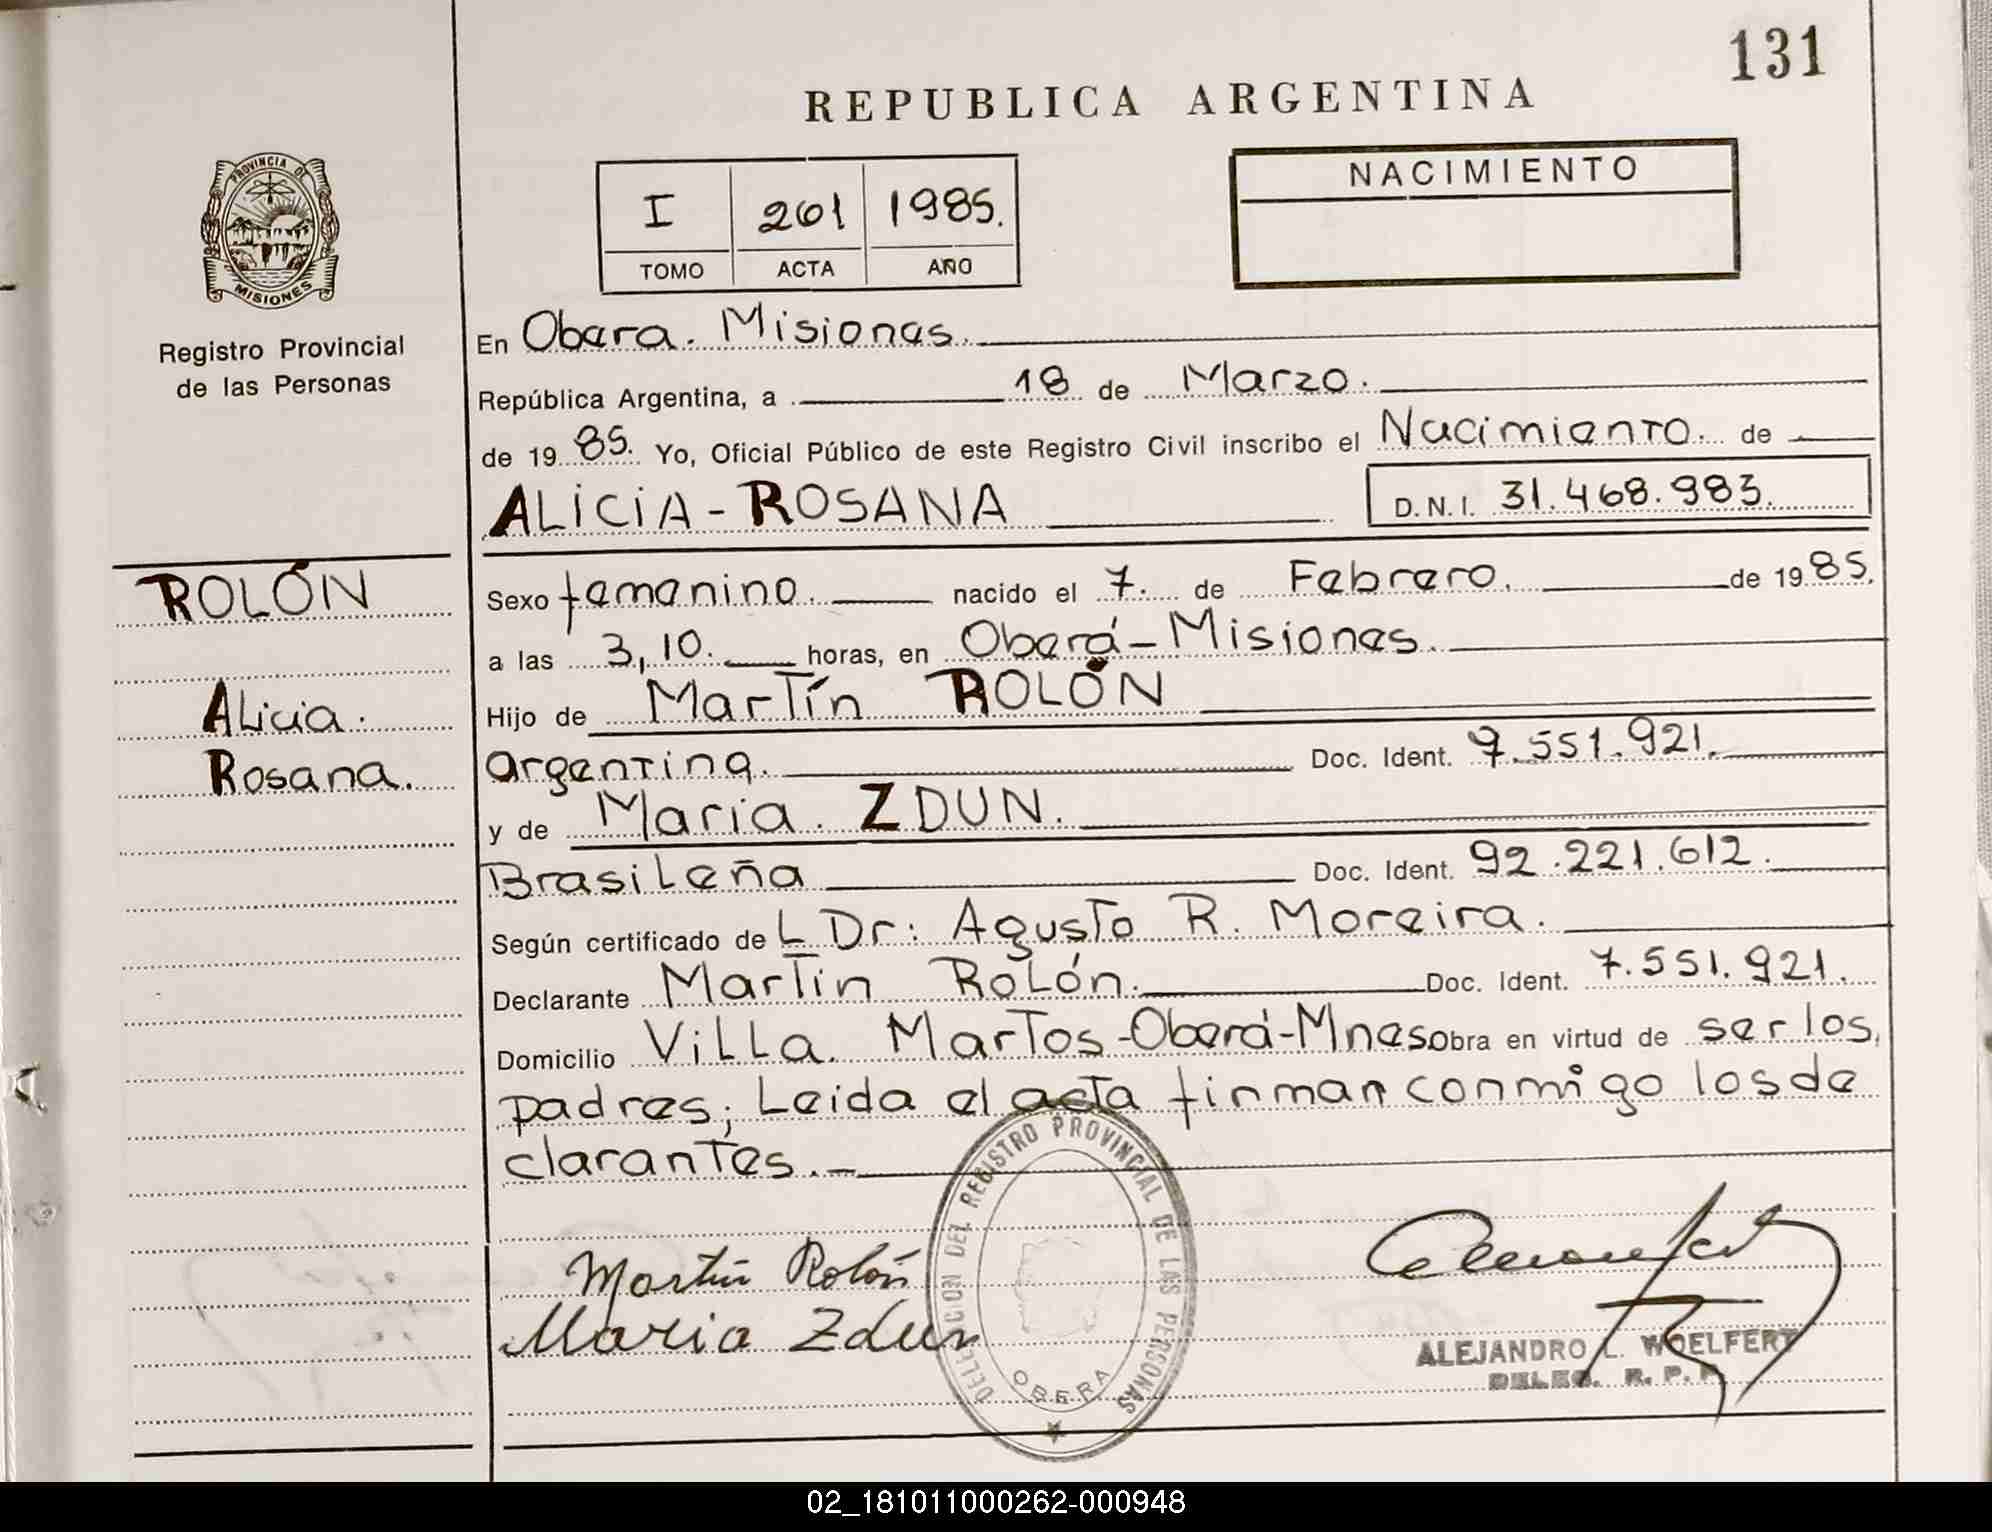 131
REPUBLICA ARGENTINA
PROVINCIA DE
MISIONES
Registro Provincial
de las Personas
I 261 1985.
TOMO ACTA AÑO
NACIMIENTO
En Obera. Misiones.
República Argentina, a 18 de Marzo.
de 19 85. Yo, Oficial Público de este Registro Civil inscribo el Nacimiento. de
ALICIA - ROSANA D.N.I. 31.468.983.
ROLÓN
Alicia.
Rosana.
Sexo femenino. nacido el 7. de Febrero. de 19 85.
a las 3,10. horas, en Oberá - Misiones.
Hijo de Martín ROLÓN
argentina. Doc. Ident. 7.551.921.
y de Maria. ZDUN.
Brasileña Doc. Ident. 92.221.612.
Según certificado de L Dr: Agusto R. Moreira.
Declarante Martin Rolón. Doc. Ident. 7.551.921.
Domicilio Villa. Martos-Oberá-Mnes. Obra en virtud de ser los
padres; Leida el acta firman conmigo los de
clarantes.-
Martín Rolón
Maria Zdun
DELEGACION DEL REGISTRO PROVINCIAL DE LAS PERSONAS
OBERA
ALEJANDRO L. WOELFERT
DELEG. R. P. P.
02_181011000262-000948